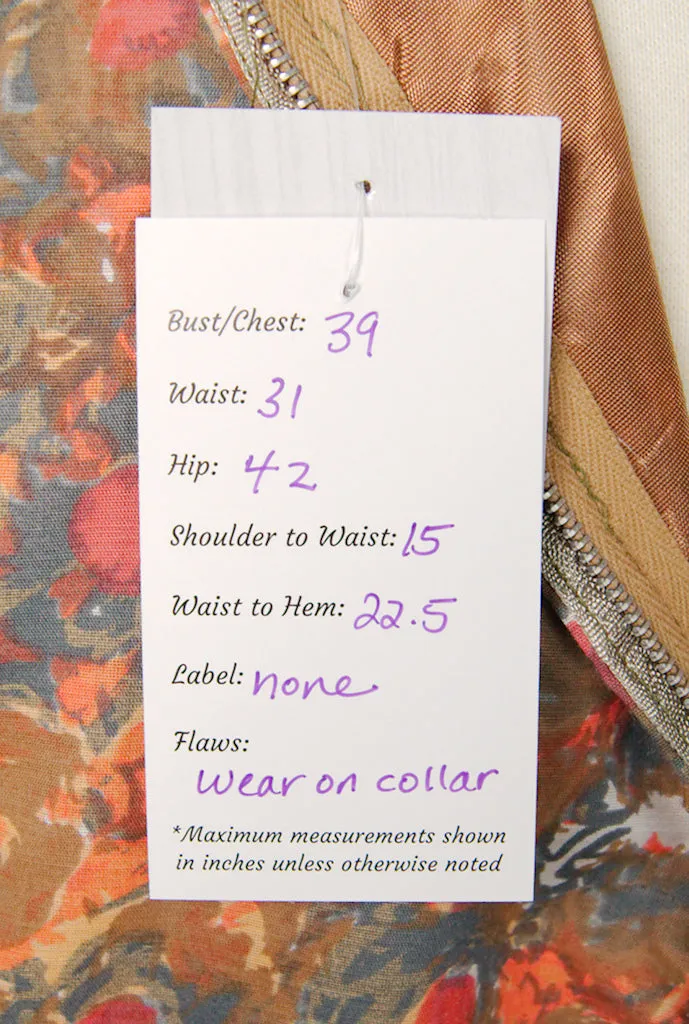 Bust/Chest: 39
Waist: 31
Hip: 42
Shoulder to Waist: 15
Waist to Hem: 22.5
Label: none
Flaws:
wear on collar
*Maximum measurements shown
in inches unless otherwise noted